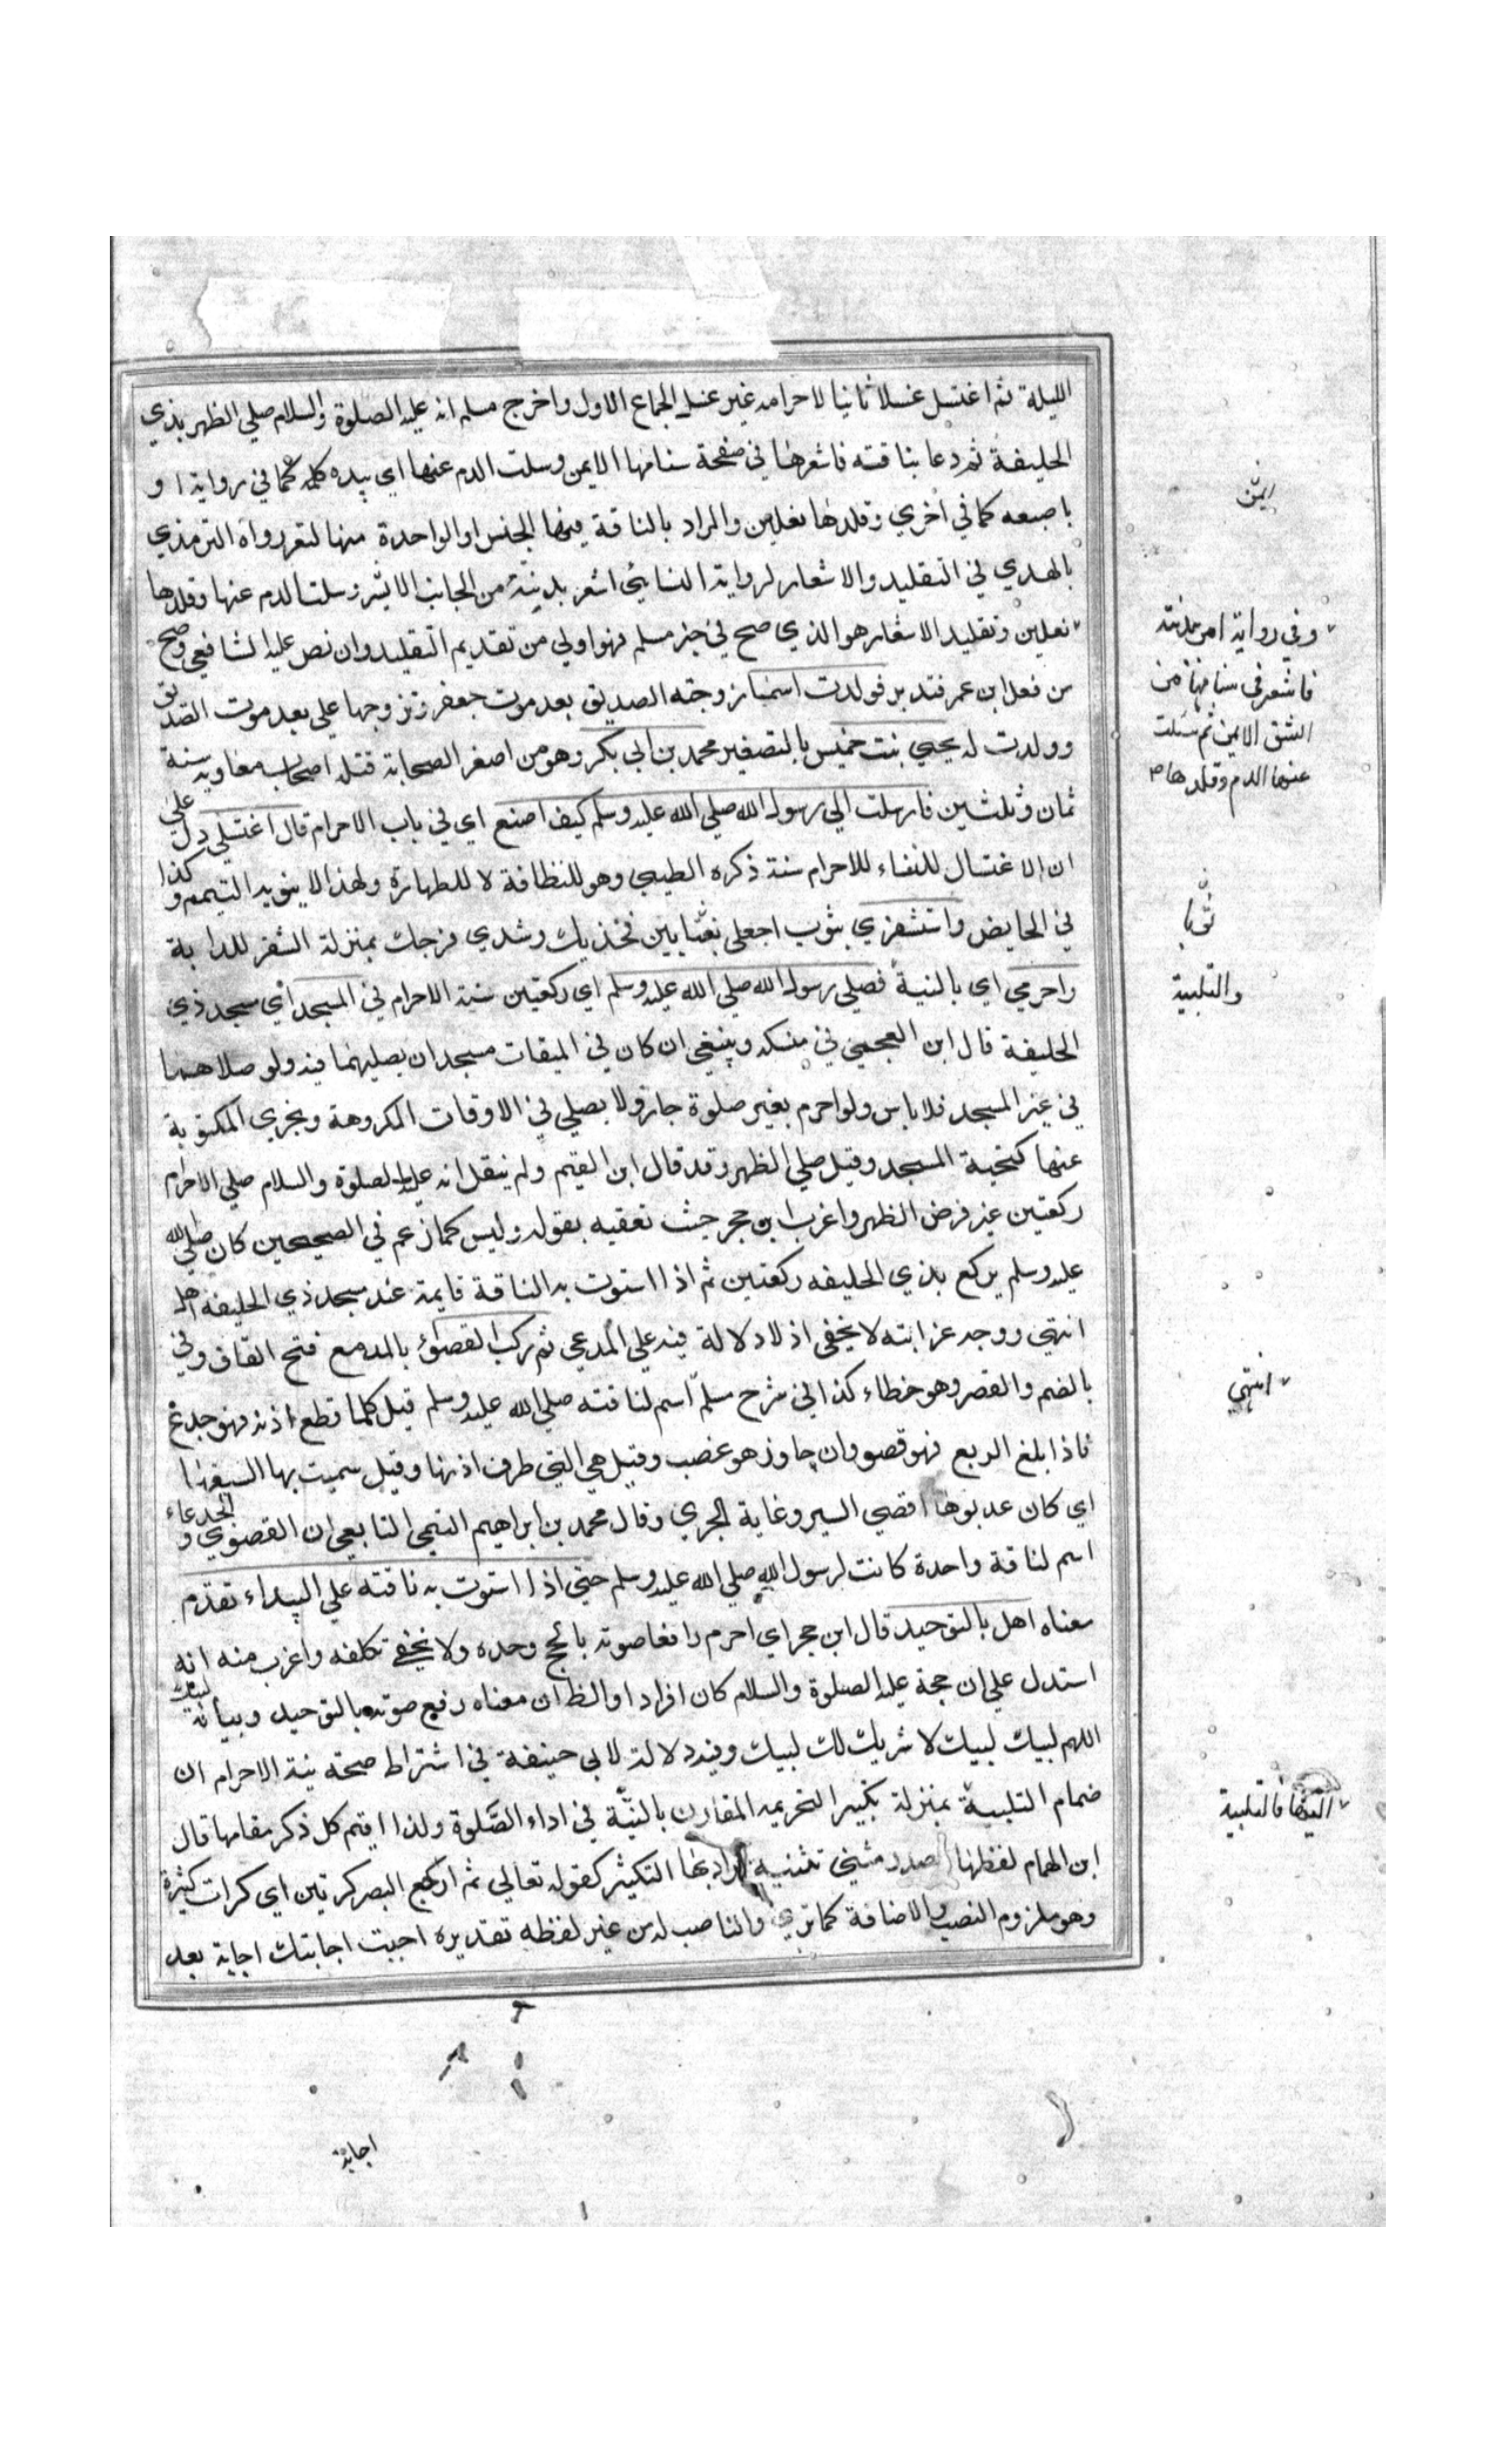 الليلة ثم اغتسل غسلا ثانيا لاحرامه غير غسل الجماع الاول واخرج مسلم انه عليه الصلوة والسلام صلي الظهر بذي
الحليفة ثم دعا بناقته فاشعرها في صفحة سنامها الايمن وسلت الدم عنها اي بيده كله كما في رواية او
باصبعه كما في اخري وقلدها نعلين والمراد بالناقة فيها الجنس او الواحدة منها لتعبر رواه الترمذي
بالهدي في التقليد والاشعار لرواية النسايئ اشعر بدنته من الجانب الايسر وسلت الدم عنها وقلدها
نعلين وتقليد الاشعار هو الذي صح في خبر مسلم فهو اولي من تقديم التقليد وان نص عليه الشافعي وصح
من فعل ابن عمر فتدبر فولدت اسماء زوجته الصديق بعد موت جعفر وتزوجها علي بعد موت الصديق
وولدت له يحيي بنت عميس بالتصغير محمد بن ابي بكر وهو من اصغر الصحابة قتله اصحاب معاوية سنة
ثمان وثلثين فارسلت الي رسول الله صلي الله عليه وسلم كيف اصنع اي في باب الاحرام قال اغتسلي دل علي
ان الاغتسال للنفساء للاحرام سنة ذكره الطيبي وهو للنظافة لا للطهارة ولهذا لا ينوبه التيمم وكذا
في الحايض واستثفري بثوب اجعلي بين فخذيك وشدي فرجك بمنزلة الثفر للدابة
واحرمي اي بالنية فصلي رسول الله صلي الله عليه وسلم اي ركعتين سنة الاحرام في المسجد اي مسجد ذي
الحليفة قال ابن العجمي في منسكه وينبغي ان كان في الميقات مسجد ان يصليهما فيه ولو صلاهما
في غير المسجد فلا باس ولو احرم بغير صلوة جاز ولا يصلي في الاوقات المكروهة وتجزي المكتوبة
عنها كتحية المسجد وقيل صلي الظهر وقد قال ابن القيم ولم ينقل انه عليه الصلوة والسلام صلي الاحرام
ركعتين غير فرض الظهر واغرب ابن حجر حيث تعقبه بقوله وليس كما زعم في الصحيحين كان صلي الله
عليه وسلم يركع بذي الحليفه ركعتين ثم اذا استوت به الناقة قايمة عند مسجد ذي الحليفة اهل
انتهي ووجه غرابته لا يخفي اذ لا دلالة فيه علي المدعي ثم ركب القصوئ بالمد مع فتح القاف وفي
بالضم والقصر وهو خطاء كذا في شرح مسلم اسم لناقته صلي الله عليه وسلم قيل كلما قطع اذنه فهو جدع
فاذا بلغ الربع فهو قصو وان جاوز هو غضب وقيل هي التي طرف اذنها وقيل سميت بها لسبقها
اي كان عدوها اقصي السير وغاية الجري وقال محمد بن ابراهيم التيمي التابعي ان القصوي والجدعاء
اسم لناقة واحدة كانت لرسول الله صلي الله عليه وسلم حتي اذا استوت به ناقته علي البيداء تقدم
معناه اهل بالتوحيد قال ابن حجر اي احرم رافعا صوته بالحج وحده ولا يخفي تكلفه واغرب منه انه
استدل علي ان حجة عليه الصلوة والسلام كان افرادا والظ ان معناه رفع صوته بالتوحيد وبيانه لبيك
اللهم لبيك لبيك لا شريك لك لبيك وفيه دلالة لابي حنيفة في اشتراط صحة نية الاحرام ان
ضمام التلبية بمنزلة تكبير التحريمه المقارن بالنية في اداء الصلوة ولذا اقيم كل ذكر مقامها قال
ابن الهمام لفظها مصدر مثني تثنيه يراد بها التكثير كقوله تعالي ثم ارجع البصر كرتين اي كرات كثيرة
وهو ملزوم النصب والاضافة كما تري والناصب له من غير لفظه تقديره اجبت اجابتك اجابة بعد
ايمن
وفي رواية امر ببدنته
فاشعر في سنامها من
الشق الايمن ثم سلت
عنها الدم وقلدها
ثوبا
والتلبية
انتهي
فالتلبية
اجابة